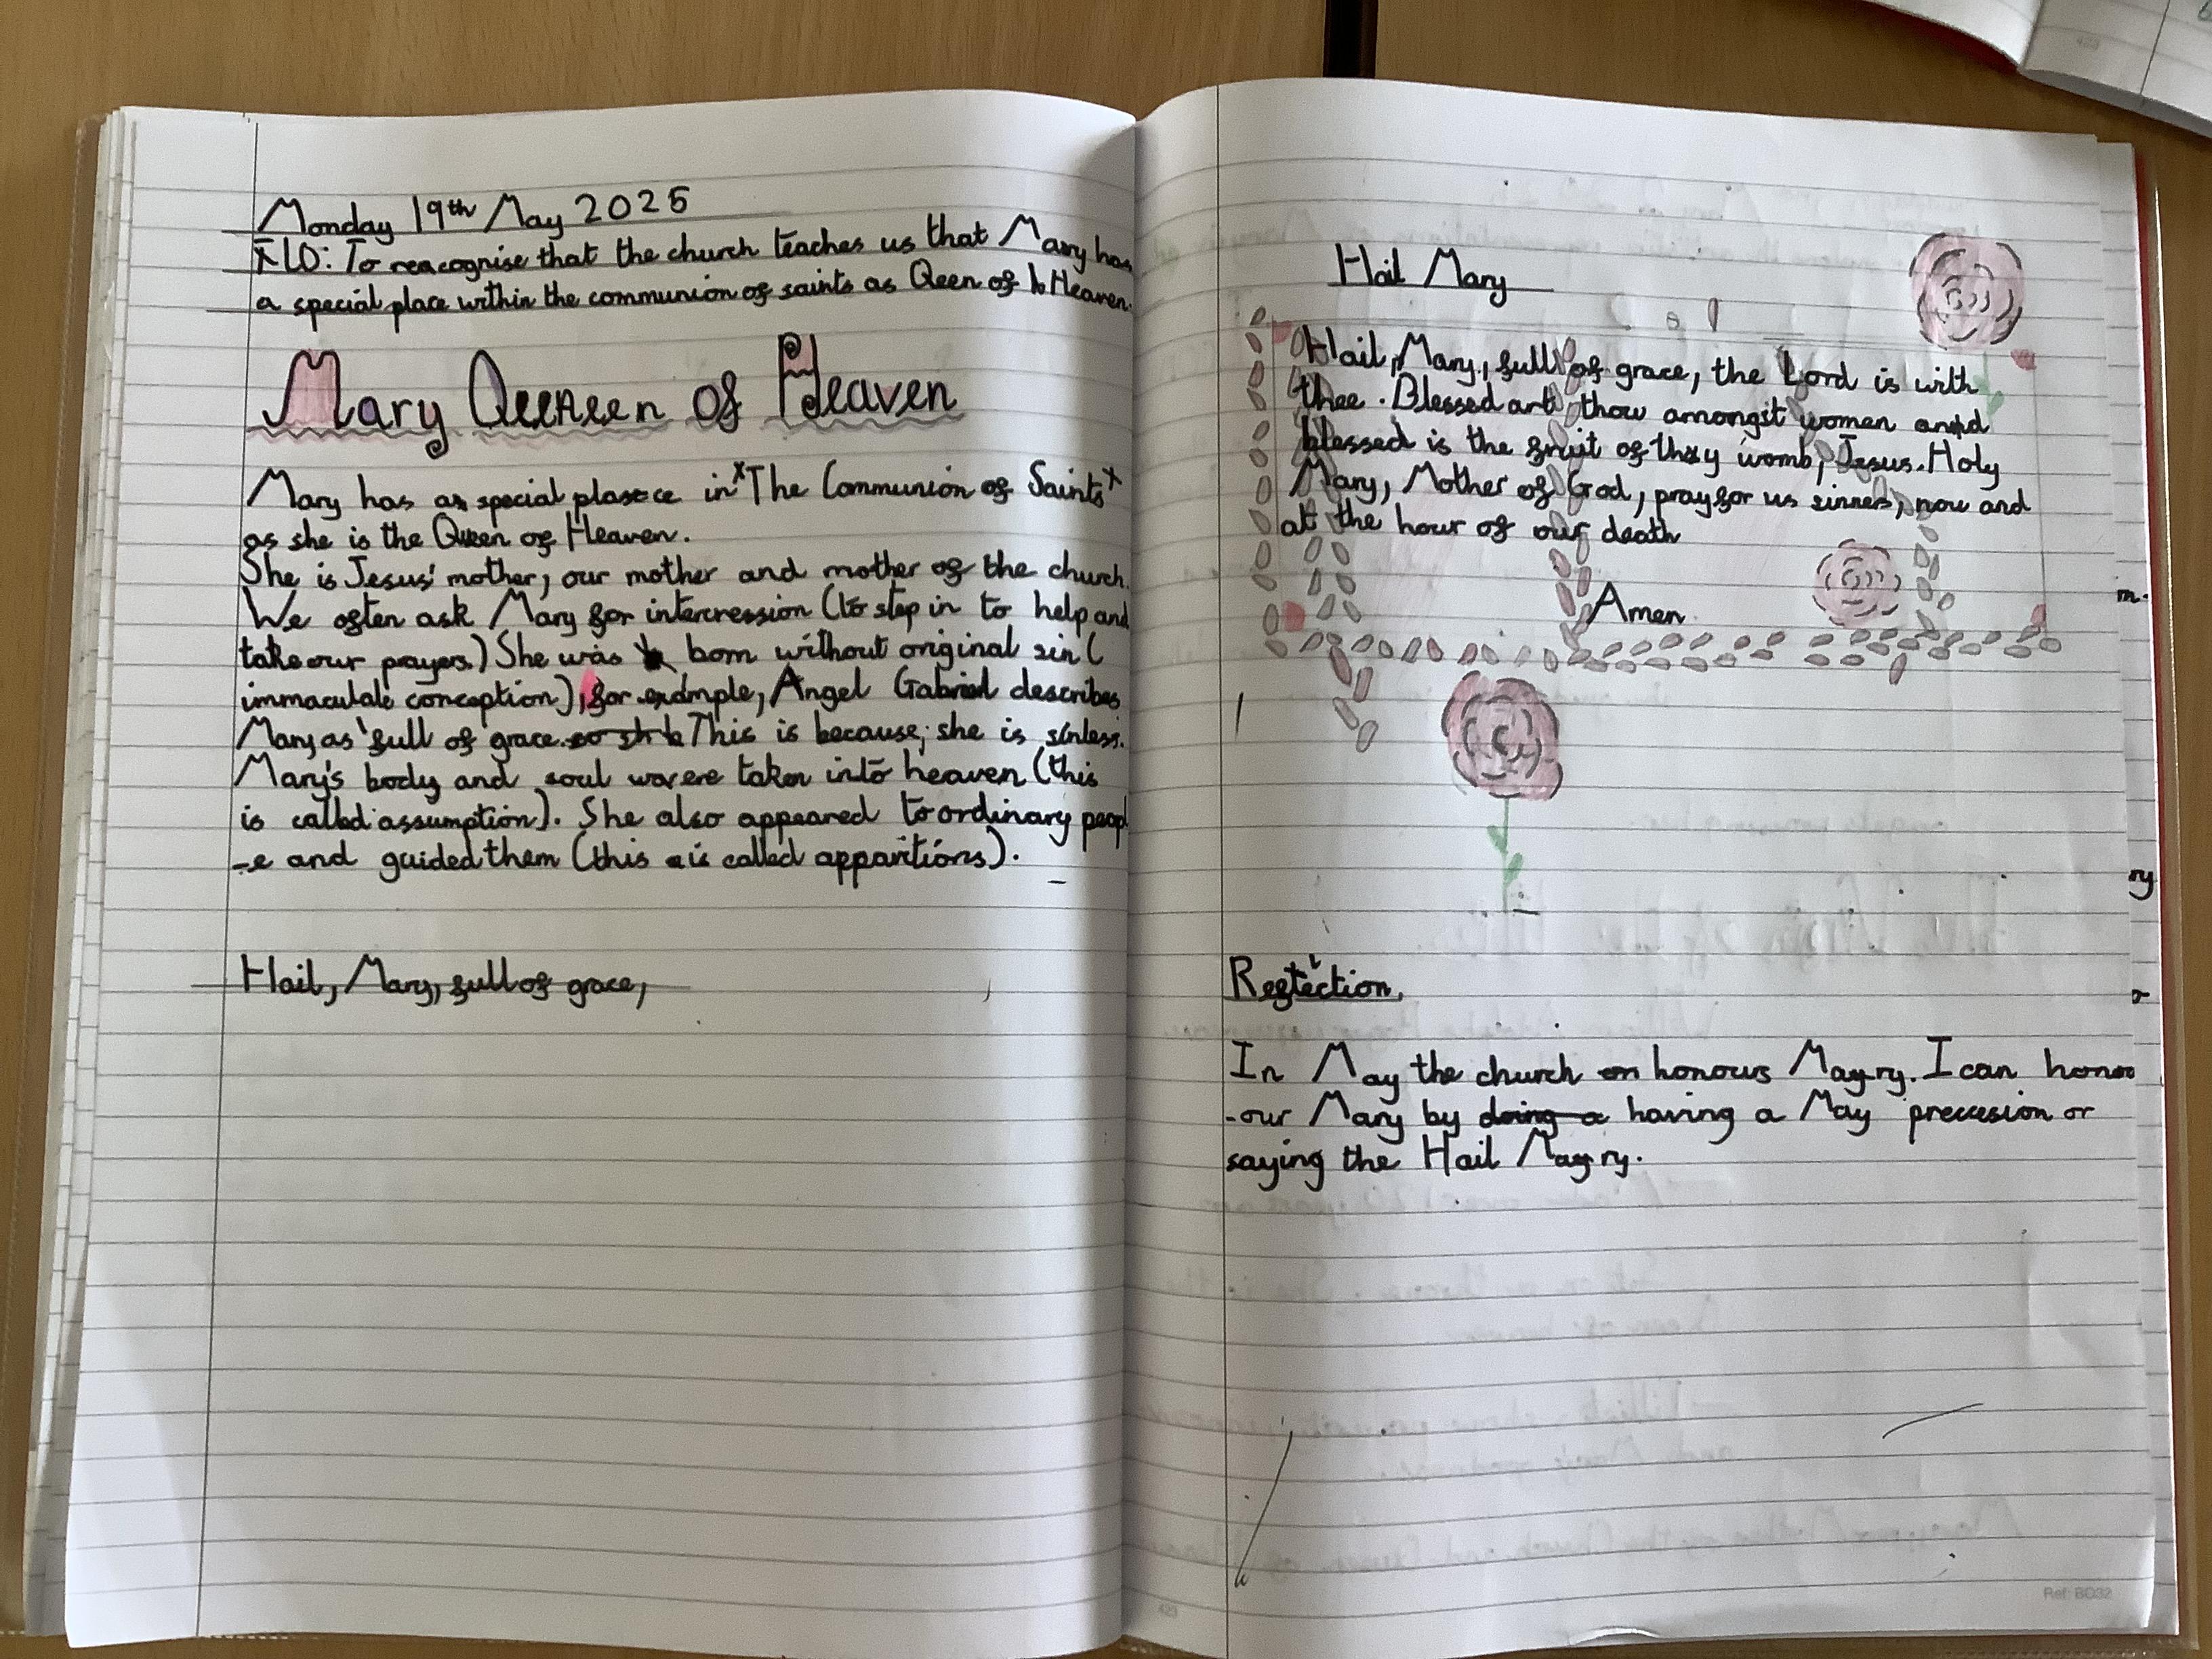 Monday 19th May 2025
FLO: To reacognise that the church teaches us that Mary has
a special place within the communion of saints as Qeen of Heaven.
Mary Queneen of Heaven
Mary has a special place in The Communion of Saints
as she is the Queen of Heaven.
She is Jesus' mother, our mother and mother of the church.
We often ask Mary for intercession (to step in to help and
take our prayers.) She was born without original sin (
immaculate conception), for example, Angel Gabriel describes
Mary as 'full of grace. This is because, she is sinless.
Mary's body and soul were taken into heaven (this
is called assumption). She also appeared to ordinary peopl
-e and guided them (this is called apparitions).
Hail, Mary, full of grace,
Hail Mary
Hail, Mary, full of grace, the Lord is with
thee. Blessed art thow amongst women and
blessed is the fruit of thy womb, Jesus. Holy
Mary, Mother of God, pray for us sinners, now and
at the hour of our death
Amen.
Reflection.
In May the church honours Mary. I can hono
-our Mary by doing a having a May preccesion or
saying the Hail Mary.
m.
ry
Ref: BD32
423